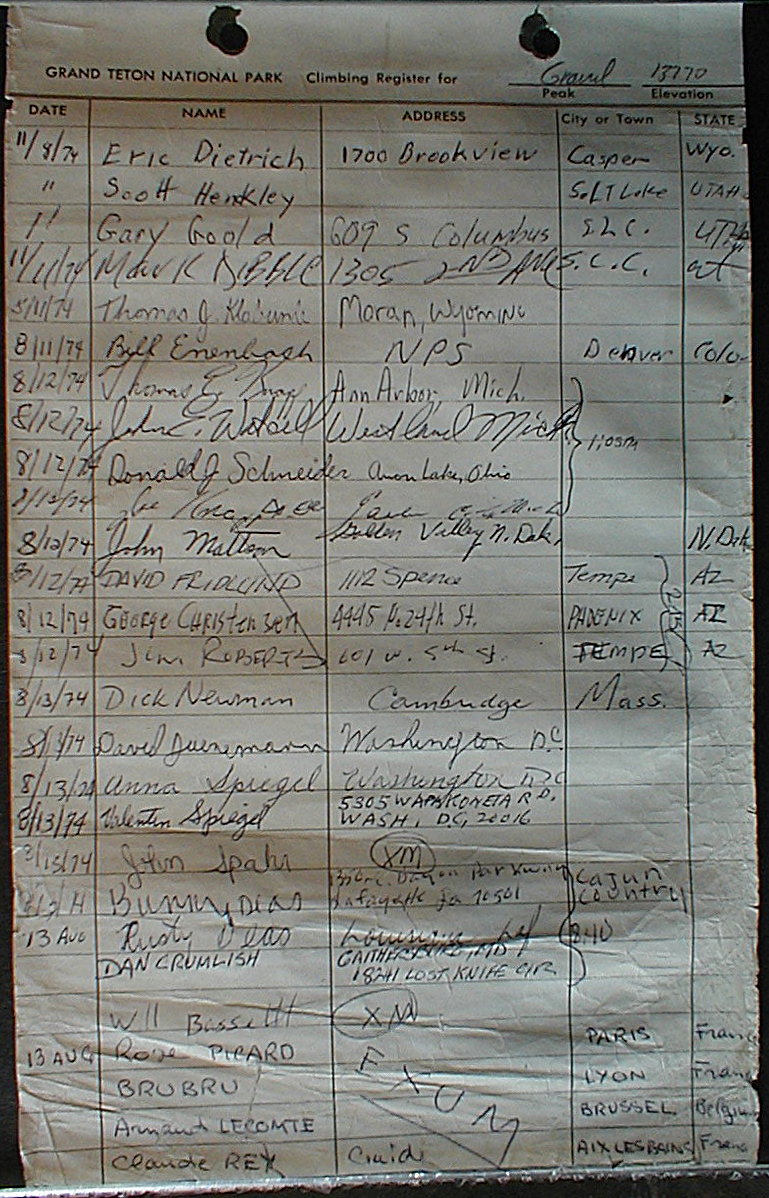 GRAND TETON NATIONAL PARK Climbing Register for Grand 13770
Peak Elevation
DATE NAME ADDRESS City or Town STATE
11/8/74 Eric Dietrich 1700 Brookview Casper Wyo.
" Scott Henkley Salt Lake UTAH
11 Gary Goold 609 S Columbus S.L.C. UTAH
11/11/74 Mark DIBBLE 1305 2ND AVE S.L.C. ut
Thomas J. Moran, WYOMING
8/11/74 Bill Enenbach NPS Denver Colo
8/12/74 Thomas E. Ann Arbor, Mich.
8/12/74 John E. Westland Mich. 1:05pm
8/12/74 Donald J Schneider Avon Lake, Ohio
8/12/74
8/12/74 John Mattson Golden Valley N. Dak. N. Dak
8/12/74 DAVID FRIDLUND 1112 Spence Tempe AZ
8/12/74 GEORGE CHRISTENSEN 4445 N. 24th St. PHOENIX AZ 2:15
8/12/74 Jim ROBERTS 601 W. 5th St. TEMPE AZ
8/13/74 Dick Newman Cambridge Mass.
8/13/74 David Juenemann Washington D.C.
8/13/74 Anna Spiegel Washington D.C.
8/13/74 Valentin Spiegel 5305 WAPAKONETA RD.
WASH, D.C, 20016
John Spahr XM
Bunny Deas Lafayette La 70501 Cajun Country
13 Aug Rusty Deas Louisiana 8:40
DAN CRUMLISH GAITHERSBURG, MD
18241 LOST KNIFE CIR
Will Bassett XM
PARIS France
13 AUG Rose PICARD EXUM
BRUBRU LYON France
Armand LECOMTE BRUSSEL Belgium
Claude REY Guide AIX LES BAINS France